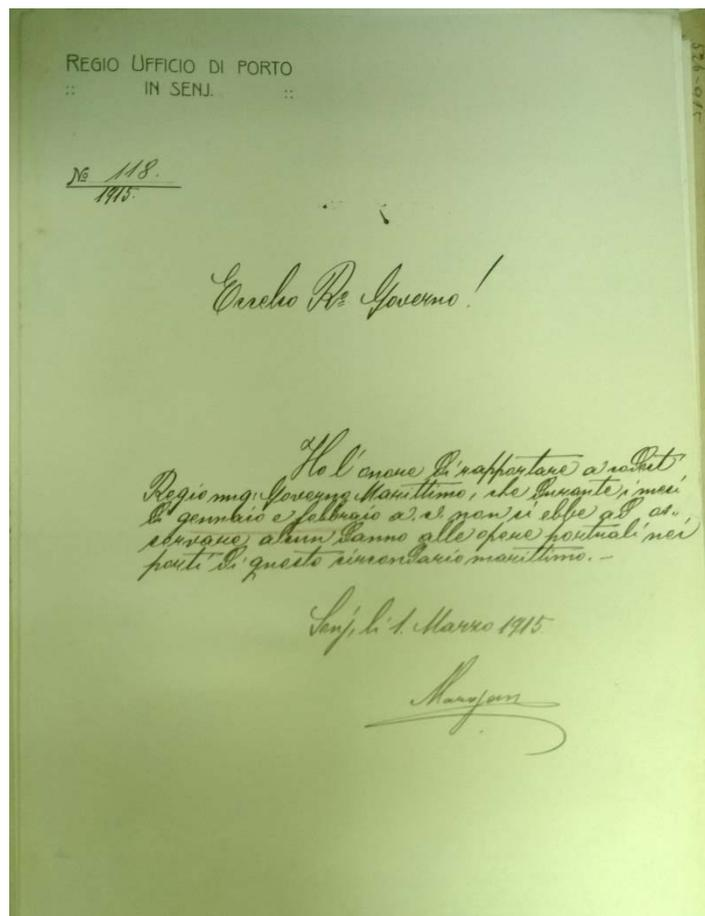 REGIO UFFICIO DI PORTO
:: IN SENJ. ::
526-915
No 118.
1915.
Eccelso Ro Governo!
Ho l'onore di rapportare a codest
Regio ung: Governo Marittimo, che durante i mesi
di gennaio e febbraio a. c. non si ebbe ad os„
servare alcun danno alle opere portuali nei
porti di questo circondario marittimo.-
Senj, li 1. Marzo 1915